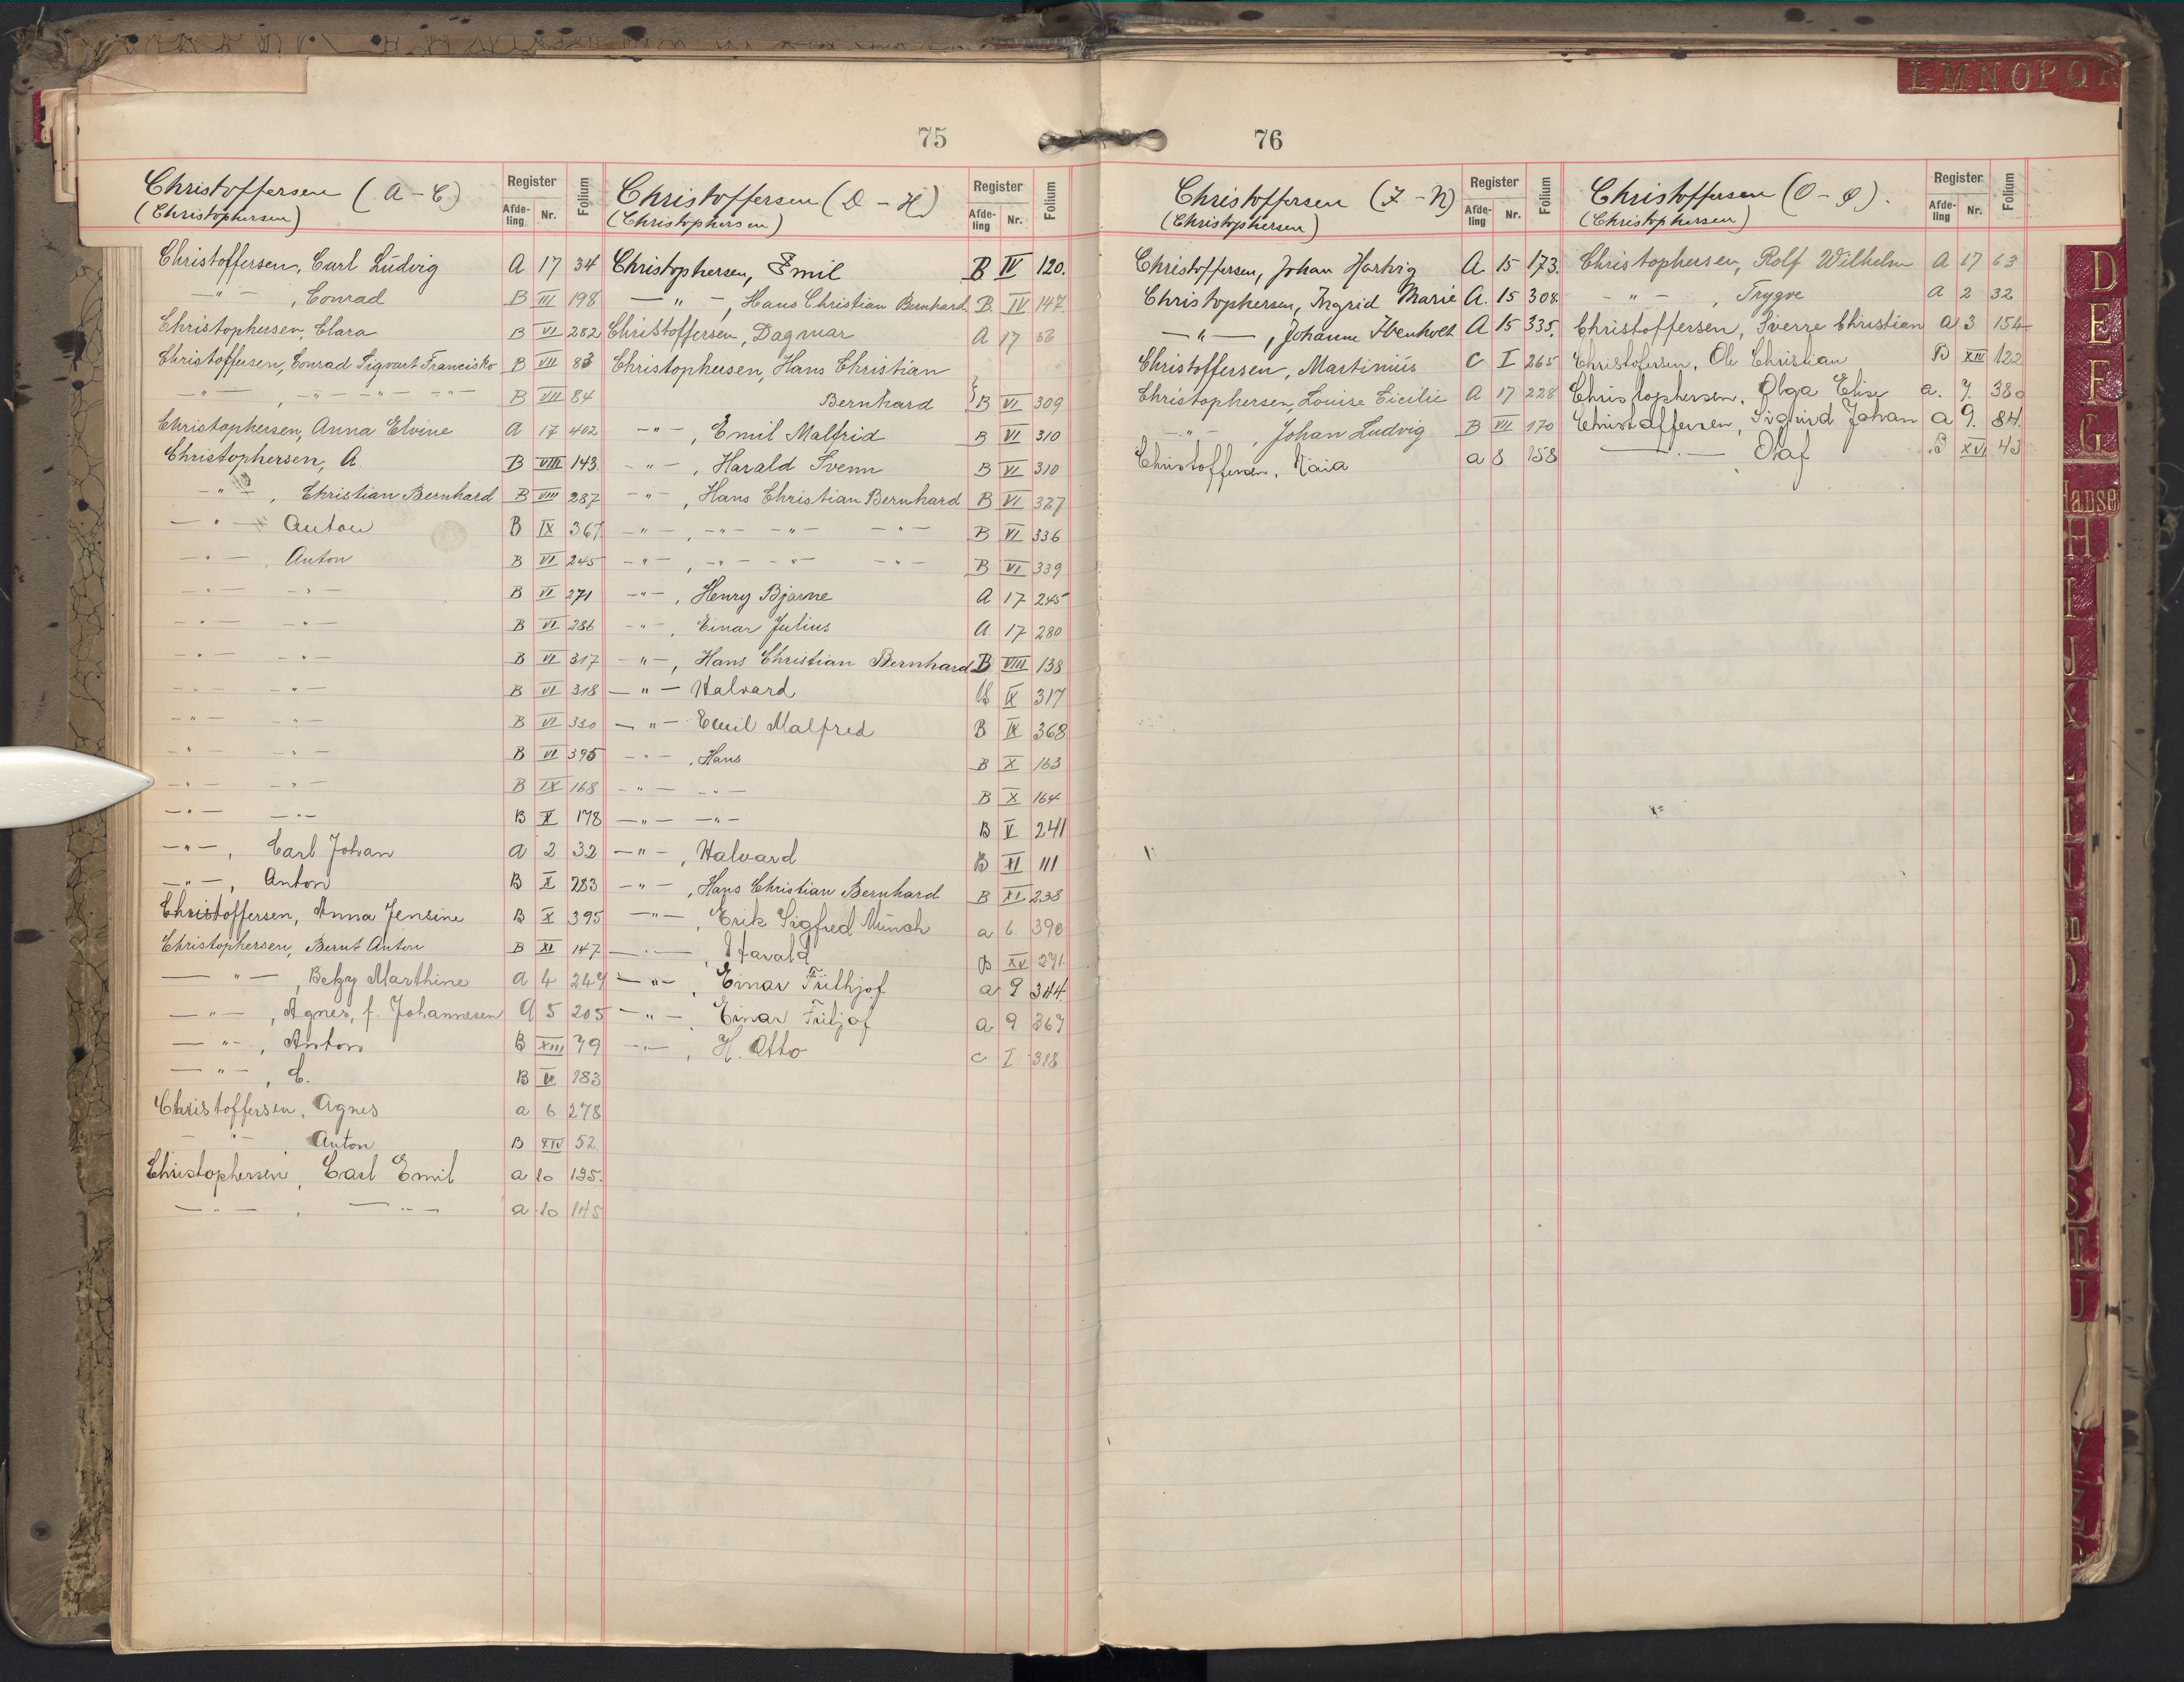 L M N O P Q R
75
Christoffersen (A - C)
(Christophersen)
Register
Afde-ling Nr. Folium
Christoffersen, Carl Ludvig A 17 34
— " — , Conrad B III 198
Christophersen, Clara B VI 282
Christoffersen, Conrad Sigvart Francisko B VII 83
— " — , — " — — " — — " — B VII 84
Christophersen, Anna Elvine A 17 402
Christophersen, A. B VIII 143.
— " — , Christian Bernhard B VIII 287
— " — Anton B IX 367
— " — , Anton B VI 245
— " — — " — B VI 271
— " — — " — B VI 286
— " — — " — B VI 317
— " — — " — B VI 318
— " — — " — B VI 330
— " — — " — B VI 395
— " — — " — B IX 168
— " — — " — B X 178
— " — , Carl Johan A 2 32
— " — , Anton B X 283
Christoffersen, Anna Jensine B X 395
Christophersen, Bernt Anton B XI 147
— " — , Marthine A 4 249
— " — , Agnes, f. Johannesen A 5 205
— " — , Anton B XIII 79
— " — , C. B 183
Christoffersen, Agnes a 6 278
— " — Anton B XIV 52.
Christophersen, Carl Emil a 10 135.
— " — , — " — a 10 145
Christoffersen (D - H)
(Christophersen)
Register
Afde-ling Nr. Folium
Christophersen, Emil B IV 120.
— " — , Hans Christian Bernhard B. IV 147.
Christoffersen, Dagmar A 17 56
Christophersen, Hans Christian
Bernhard } B VI 309
— " — , Emil Malfrid B VI 310
— " — , Harald Svenn B VI 310
— " — , Hans Christian Bernhard B VI 327
— " — , — " — — " — — " — B VI 336
— " — , — " — — " — — " — B VI 339
— " — , Henry Bjarne A 17 245
— " — , Einar Julius A. 17 280
— " — , Hans Christian Bernhard B VIII 138
— " — Halvard B IX 317
— " — Emil Malfred B IX 368
— " — , Hans B X 163
— " — — " — B X 164
— " — — " — B V 241
— " — , Halvard B XI 111
— " — , Hans Christian Bernhard B XI 238
— " — , Erik Sigfred Münch a 6. 390
— " — , Harald B XV 271.
— " — , Einar Frithjof a 9 344.
— " — , Einar Fritjof a 9 367
— " — , H. Otto C I 318
76
Christoffersen (I - N)
(Christophersen)
Register
Afde-ling Nr. Folium
Christoffersen, Johan Hartvig A. 15 173.
Christophersen, Ingrid Marie A. 15 308.
— " — , Johanne Ibenholt A 15 335.
Christoffersen, Martinius C I 265
Christophersen, Louise Cicilie A 17 228
— " — , Johan Ludvig B VII 170
Christoffersen, a 8 158
Christoffersen (O - Ø).
(Christophersen)
Register
Afde-ling Nr. Folium
Christophersen, Rolf Wilhelm A 17 63
— " — , Trygve A 2 32
Christoffersen, Sverre Christian A 3 154
Christofersen, Ole Christian B XIV 122
Christophersen, Olga Elise a. 7. 380
Christoffersen, Sigurd Johan a 9. 84.
— " — , Olaf B XVI 43
D
E
F
G
Hanse
H
I
J
K
L
M
N
O
P
Q
R
S
T
U
Y
Z